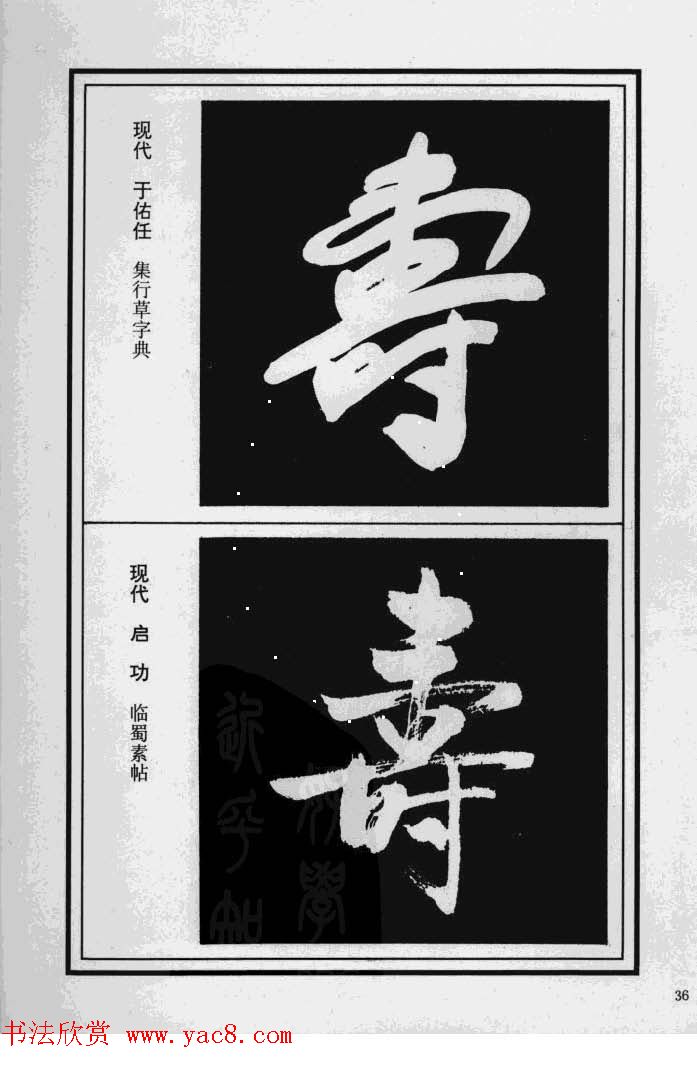 现代 于佑任 集行草字典
壽
现代 启功 临蜀素帖
壽
36
书法欣赏 www.yac8.com